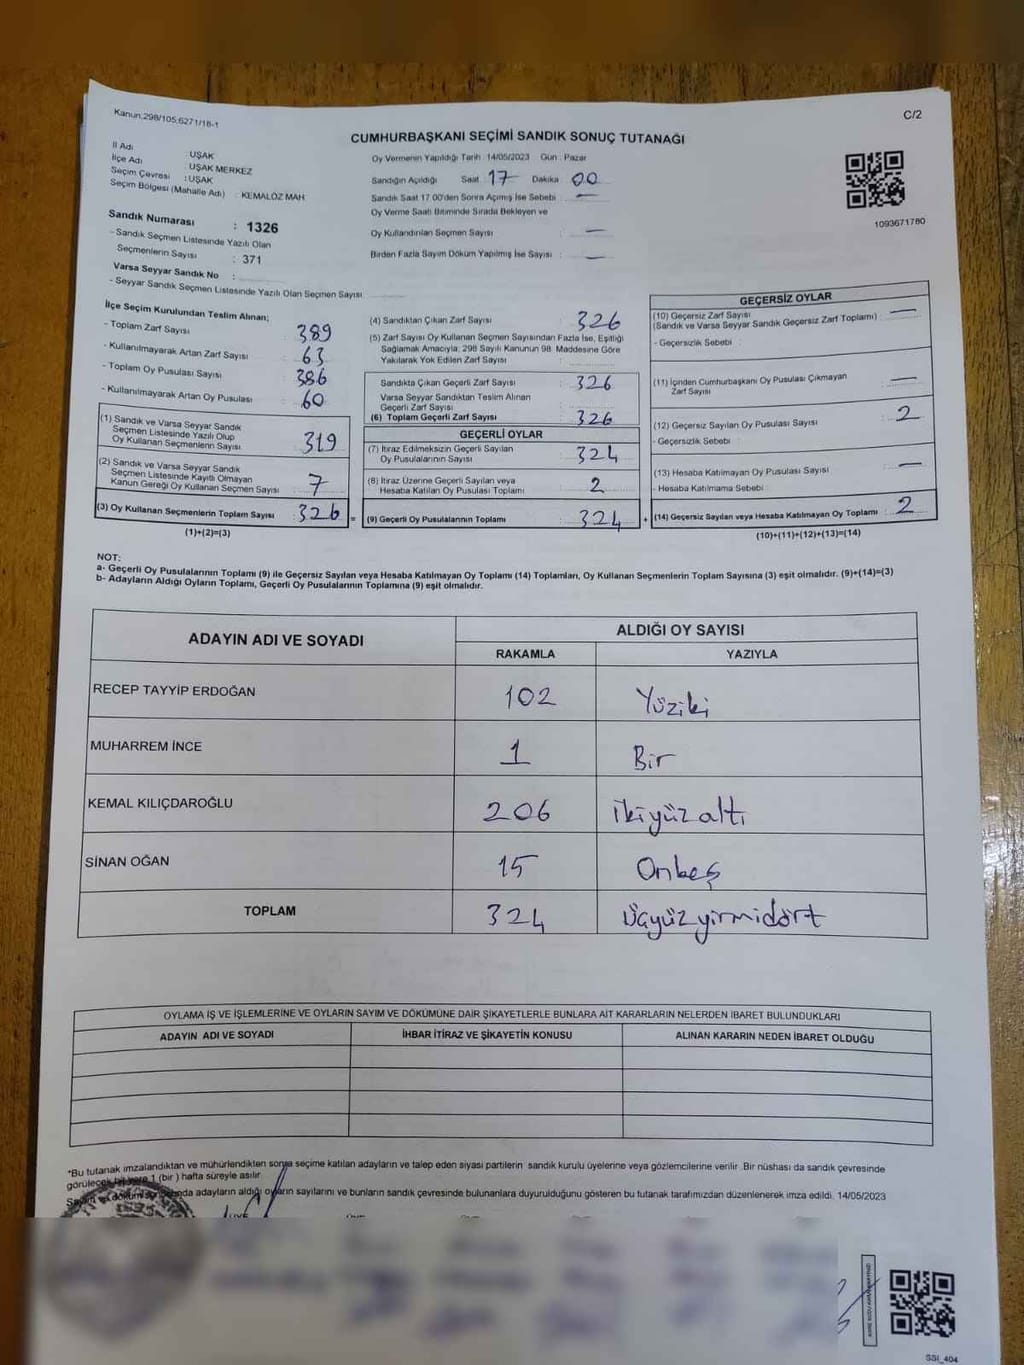 Kanun:298/105;6271/16-1
C/2
CUMHURBAŞKANI SEÇİMİ SANDIK SONUÇ TUTANAĞI
İl Adı : UŞAK
İlçe Adı : UŞAK MERKEZ
Seçim Çevresi : UŞAK
Seçim Bölgesi (Mahalle Adı) : KEMALÖZ MAH
Sandık Numarası : 1326
- Sandık Seçmen Listesinde Yazılı Olan
Seçmenlerin Sayısı : 371
Varsa Seyyar Sandık No :
- Seyyar Sandık Seçmen Listesinde Yazılı Olan Seçmen Sayısı
Oy Vermenin Yapıldığı Tarih 14/05/2023 Gün : Pazar
Sandığın Açıldığı Saat 17 Dakika 00
Sandık Saat 17.00'den Sonra Açımış İse Sebebi : —
Oy Verme Saati Bitiminde Sırada Bekleyen ve
Oy Kullandırılan Seçmen Sayısı : —
Birden Fazla Sayım Döküm Yapılmış İse Sayısı : —
1093671780
İlçe Seçim Kurulundan Teslim Alınan;
- Toplam Zarf Sayısı : 389
- Kullanılmayarak Artan Zarf Sayısı : 63
- Toplam Oy Pusulası Sayısı : 386
- Kullanılmayarak Artan Oy Pusulası : 60
(1) Sandık ve Varsa Seyyar Sandık
Seçmen Listesinde Yazılı Olup
Oy Kullanan Seçmenlerin Sayısı : 319
(2) Sandık ve Varsa Seyyar Sandık
Seçmen Listesinde Kayıtlı Olmayan
Kanun Gereği Oy Kullanan Seçmen Sayısı : 7
(3) Oy Kullanan Seçmenlerin Toplam Sayısı : 326
(1)+(2)=(3)
(4) Sandıktan Çıkan Zarf Sayısı : 326
(5) Zarf Sayısı Oy Kullanan Seçmen Sayısından Fazla İse, Eşitliği
Sağlamak Amacıyla; 298 Sayılı Kanunun 98. Maddesine Göre
Yakılarak Yok Edilen Zarf Sayısı :
Sandıkta Çıkan Geçerli Zarf Sayısı : 326
Varsa Seyyar Sandıktan Teslim Alınan
Geçerli Zarf Sayısı :
(6) Toplam Geçerli Zarf Sayısı : 326
GEÇERLİ OYLAR
(7) İtiraz Edilmeksizin Geçerli Sayılan
Oy Pusulalarının Sayısı : 324
(8) İtiraz Üzerine Geçerli Sayılan veya
Hesaba Katılan Oy Pusulası Toplamı : 2
= (9) Geçerli Oy Pusulalarının Toplamı : 324 +
GEÇERSİZ OYLAR
(10) Geçersiz Zarf Sayısı : —
(Sandık ve Varsa Seyyar Sandık Geçersiz Zarf Toplamı)
- Geçersizlik Sebebi :
(11) İçinden Cumhurbaşkanı Oy Pusulası Çıkmayan
Zarf Sayısı : —
(12) Geçersiz Sayılan Oy Pusulası Sayısı : 2
- Geçersizlik Sebebi :
(13) Hesaba Katılmayan Oy Pusulası Sayısı : —
- Hesaba Katılmama Sebebi :
(14) Geçersiz Sayılan veya Hesaba Katılmayan Oy Toplamı : 2
(10)+(11)+(12)+(13)=(14)
NOT:
a- Geçerli Oy Pusulalarının Toplamı (9) ile Geçersiz Sayılan veya Hesaba Katılmayan Oy Toplamı (14) Toplamları, Oy Kullanan Seçmenlerin Toplam Sayısına (3) eşit olmalıdır. (9)+(14)=(3)
b- Adayların Aldığı Oyların Toplamı, Geçerli Oy Pusulalarının Toplamına (9) eşit olmalıdır.
ADAYIN ADI VE SOYADI ALDIĞI OY SAYISI
RAKAMLA YAZIYLA
RECEP TAYYİP ERDOĞAN 102 Yüziki
MUHARREM İNCE 1 Bir
KEMAL KILIÇDAROĞLU 206 ikiyüzaltı
SİNAN OĞAN 15 Onbeş
TOPLAM 324 üçyüzyirmidört
OYLAMA İŞ VE İŞLEMLERİNE VE OYLARIN SAYIM VE DÖKÜMÜNE DAİR ŞİKAYETLERLE BUNLARA AİT KARARLARIN NELERDEN İBARET BULUNDUKLARI
ADAYIN ADI VE SOYADI İHBAR İTİRAZ VE ŞİKAYETİN KONUSU ALINAN KARARIN NEDEN İBARET OLDUĞU
*Bu tutanak imzalandıktan ve mühürlendikten sonra seçime katılan adayların ve talep eden siyasi partilerin sandık kurulu üyelerine veya gözlemcilerine verilir. Bir nüshası da sandık çevresinde
görülecek bir yere 1 (bir) hafta süreyle asılır.
Sayım ve döküm adayların aldığı oyların sayılarını ve bunların sandık çevresinde bulunanlara duyurulduğunu gösteren bu tutanak tarafımızdan düzenlenerek imza edildi. 14/05/2023
SSI_404